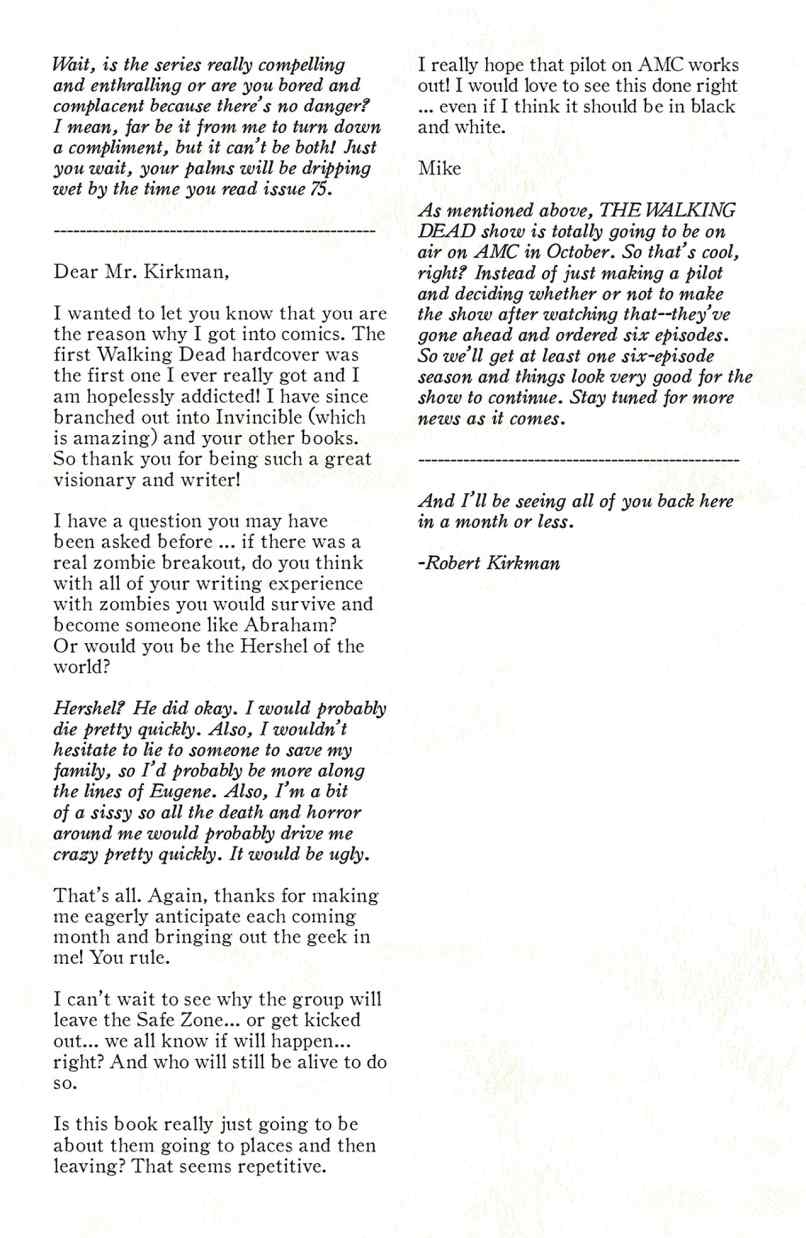 Wait, is the series really compelling
and enthralling or are you bored and
complacent because there's no danger?
I mean, far be it from me to turn down
a compliment, but it can't be both! Just
you wait, your palms will be dripping
wet by the time you read issue 75.
--------------------------------------------------
Dear Mr. Kirkman,
I wanted to let you know that you are
the reason why I got into comics. The
first Walking Dead hardcover was
the first one I ever really got and I
am hopelessly addicted! I have since
branched out into Invincible (which
is amazing) and your other books.
So thank you for being such a great
visionary and writer!
I have a question you may have
been asked before ... if there was a
real zombie breakout, do you think
with all of your writing experience
with zombies you would survive and
become someone like Abraham?
Or would you be the Hershel of the
world?
Hershel? He did okay. I would probably
die pretty quickly. Also, I wouldn't
hesitate to lie to someone to save my
family, so I'd probably be more along
the lines of Eugene. Also, I'm a bit
of a sissy so all the death and horror
around me would probably drive me
crazy pretty quickly. It would be ugly.
That's all. Again, thanks for making
me eagerly anticipate each coming
month and bringing out the geek in
me! You rule.
I can't wait to see why the group will
leave the Safe Zone... or get kicked
out... we all know if will happen...
right? And who will still be alive to do
so.
Is this book really just going to be
about them going to places and then
leaving? That seems repetitive.
I really hope that pilot on AMC works
out! I would love to see this done right
... even if I think it should be in black
and white.
Mike
As mentioned above, THE WALKING
DEAD show is totally going to be on
air on AMC in October. So that's cool,
right? Instead of just making a pilot
and deciding whether or not to make
the show after watching that--they've
gone ahead and ordered six episodes.
So we'll get at least one six-episode
season and things look very good for the
show to continue. Stay tuned for more
news as it comes.
--------------------------------------------------
And I'll be seeing all of you back here
in a month or less.
-Robert Kirkman